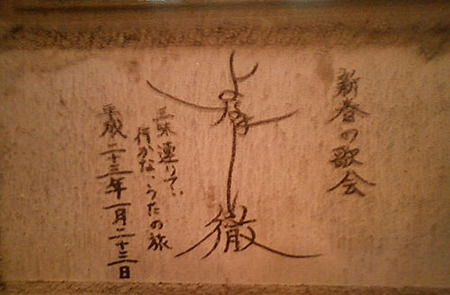 新春の歌会
徹
三味連りてい
行かな、うたの旅
平成二十三年一月二十三日